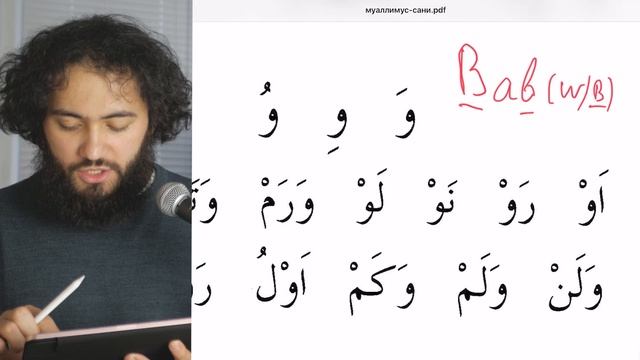 муаллимус-сани.pdf
Вав (w/в)
وَ وِ وُ
اَوْ رَوْ نَوْ لَوْ وَرَمْ
وَلَنْ وَلَمْ وَكَمْ اَوْلُ